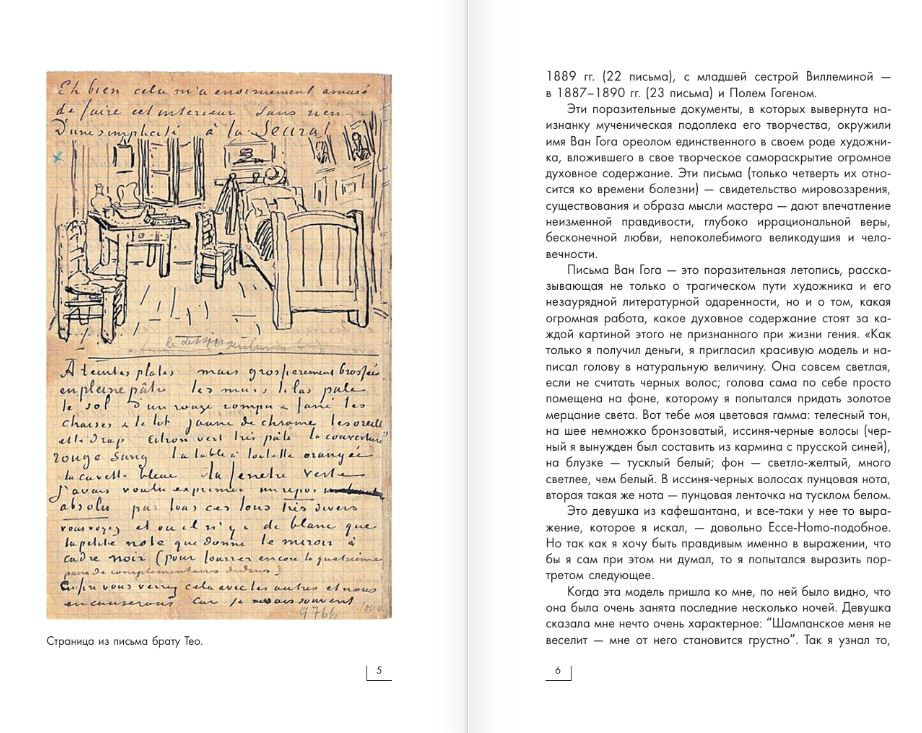 Eh bien cela m'a enormement amusé
de faire cet interieur sans rien
D'une simplicité à la Seurat
A teintes plates mais grossierement brossées
en pleine pâte les murs lilas pale
le sol d'un rouge rompu & fané les
chaises & le lit jaune de chrome les oreillers
et le drap citron vert très pâle la couverture
rouge sang la table à toilette orangée
la cuvette bleue la fenetre verte
J'avais voulu exprimer un repos
absolu par tous ces tons très divers
vous voyez et où il n'y a de blanc que
la petite note que donne le miroir à
cadre noir (pour fourrer encore la quatrième
paire de complementaires dedans)
Enfin vous verrez cela avec les autres et nous
en causerons car je ne sais souvent
Страница из письма брату Тео.
5
1889 гг. (22 письма), с младшей сестрой Виллеминой —
в 1887–1890 гг. (23 письма) и Полем Гогеном.
Эти поразительные документы, в которых вывернута на-
изнанку мученическая подоплека его творчества, окружили
имя Ван Гога ореолом единственного в своем роде художни-
ка, вложившего в свое творческое самораскрытие огромное
духовное содержание. Эти письма (только четверть их отно-
сится ко времени болезни) — свидетельство мировоззрения,
существования и образа мысли мастера — дают впечатление
неизменной правдивости, глубоко иррациональной веры,
бесконечной любви, непоколебимого великодушия и чело-
вечности.
Письма Ван Гога — это поразительная летопись, расска-
зывающая не только о трагическом пути художника и его
незаурядной литературной одаренности, но и о том, какая
огромная работа, какое духовное содержание стоят за ка-
ждой картиной этого не признанного при жизни гения. «Как
только я получил деньги, я пригласил красивую модель и на-
писал голову в натуральную величину. Она совсем светлая,
если не считать черных волос; голова сама по себе просто
помещена на фоне, которому я попытался придать золотое
мерцание света. Вот тебе моя цветовая гамма: телесный тон,
на шее немножко бронзоватый, иссиня-черные волосы (чер-
ный я вынужден был составить из кармина с прусской синей),
на блузке — тусклый белый; фон — светло-желтый, много
светлее, чем белый. В иссиня-черных волосах пунцовая нота,
вторая такая же нота — пунцовая ленточка на тусклом белом.
Это девушка из кафешантана, и все-таки у нее то выра-
жение, которое я искал, — довольно Ecce-Homo-подобное.
Но так как я хочу быть правдивым именно в выражении, что
бы я сам при этом ни думал, то я попытался выразить пор-
третом следующее.
Когда эта модель пришла ко мне, по ней было видно, что
она была очень занята последние несколько ночей. Девушка
сказала мне нечто очень характерное: “Шампанское меня не
веселит — мне от него становится грустно”. Так я узнал то,
6